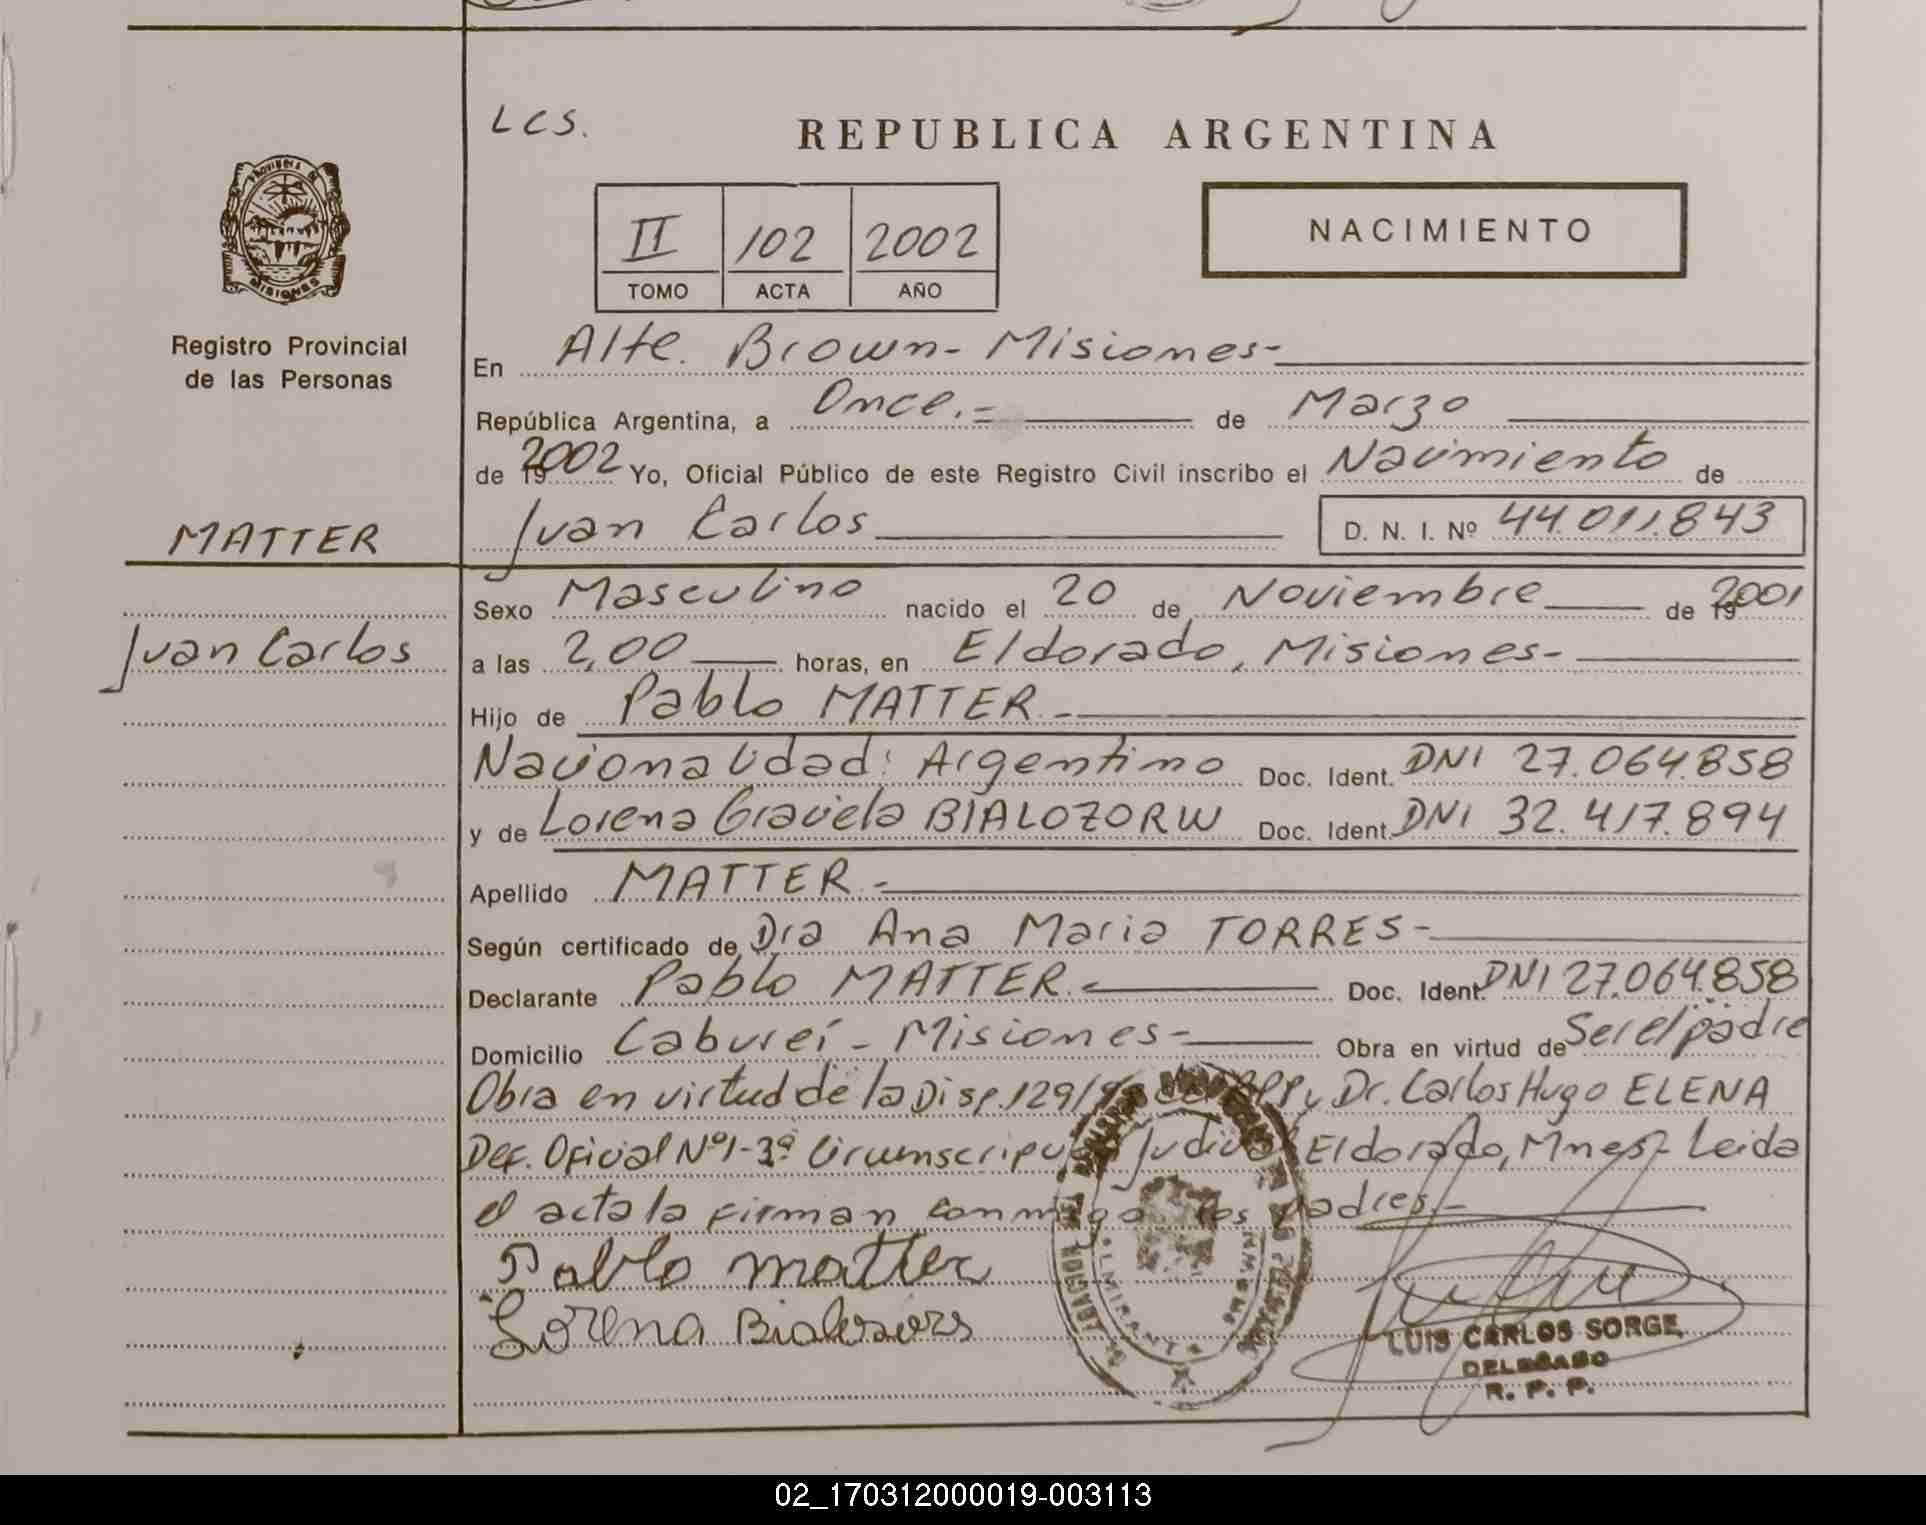 LCS.
REPUBLICA ARGENTINA
II 102 2002
TOMO ACTA AÑO
NACIMIENTO
PROVINCIA DE MISIONES
Registro Provincial
de las Personas
MATTER
Juan Carlos
En Alte. Brown - Misiones -
República Argentina, a Once.= de Marzo
de 2002 Yo, Oficial Público de este Registro Civil inscribo el Nacimiento de
Juan Carlos D. N. I. Nº 44.011.843
Sexo Masculino nacido el 20 de Noviembre de 2001
a las 2,00 horas, en Eldorado, Misiones -
Hijo de Pablo MATTER.-
Nacionalidad: Argentino Doc. Ident. DNI 27.064.858
y de Lorena Graciela BIALOZORW Doc. Ident. DNI 32.417.894
Apellido MATTER.-
Según certificado de Dra Ana Maria TORRES -
Declarante Pablo MATTER.- Doc. Ident. DNI 27.064.858
Domicilio Cabureí - Misiones - Obra en virtud de Ser el padre
Obra en virtud de la Disp. 129/ RPP y Dr. Carlos Hugo ELENA
Def. Oficial Nº1-3ª Circunscripción Judicial Eldorado, Mnes - Leida
el acta la firman conmigo los padres.-
Pablo matter
Lorena
LUIS CARLOS SORGE
DELEGADO
R. P. P.
02_170312000019-003113